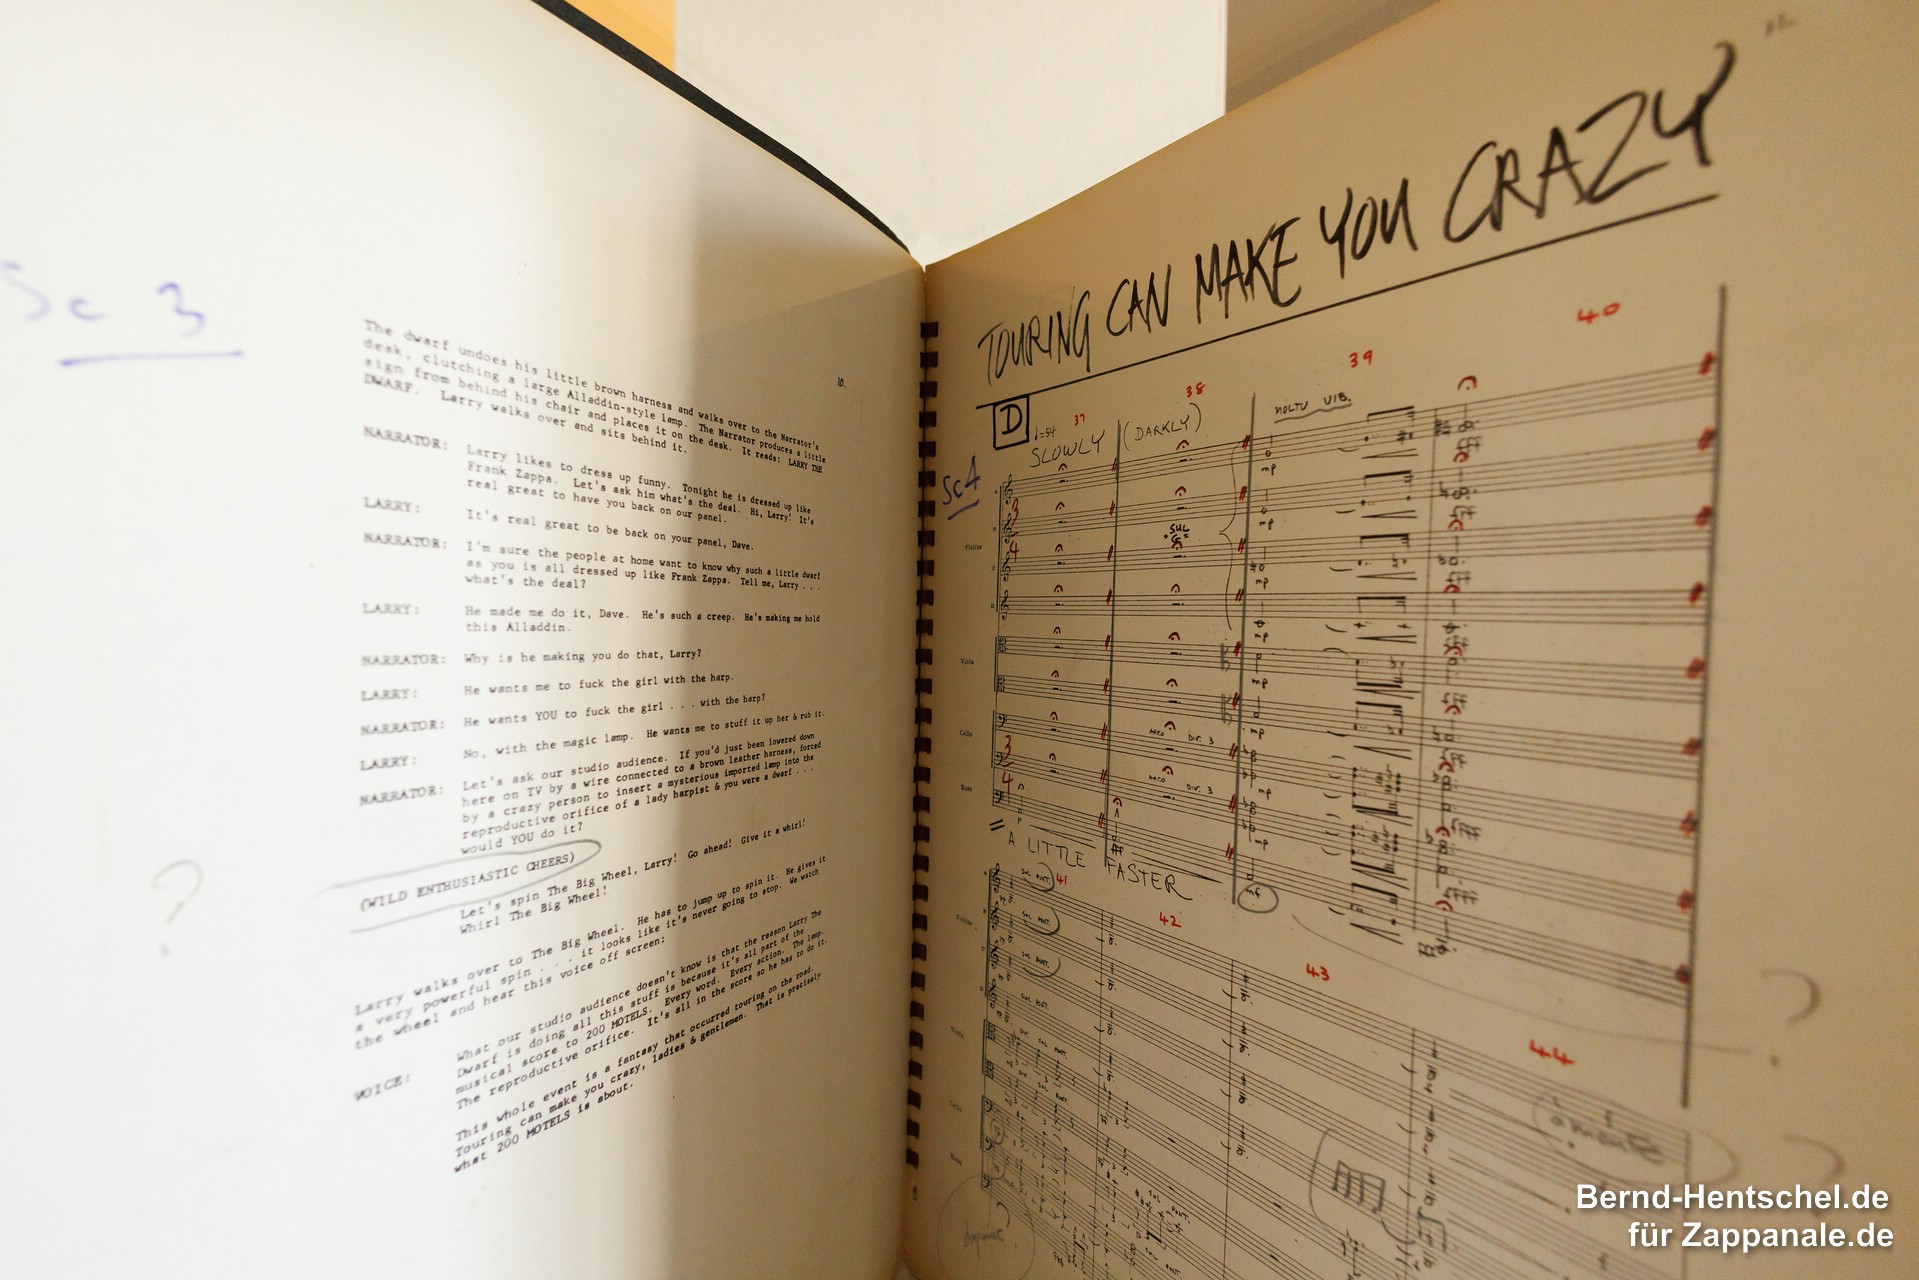 Sc 3
10.
The dwarf undoes his little brown harness and walks over to the Narrator's
desk, clutching a large Alladdin-style lamp. The Narrator produces a little
sign from behind his chair and places it on the desk. It reads: LARRY THE
DWARF. Larry walks over and sits behind it.
NARRATOR: Larry likes to dress up funny. Tonight he is dressed up like
Frank Zappa. Let's ask him what's the deal. Hi, Larry! It's
real great to have you back on our panel.
LARRY: It's real great to be back on your panel, Dave.
NARRATOR: I'm sure the people at home want to know why such a little dwarf
as you is all dressed up like Frank Zappa. Tell me, Larry . . .
what's the deal?
LARRY: He made me do it, Dave. He's such a creep. He's making me hold
this Alladdin.
NARRATOR: Why is he making you do that, Larry?
LARRY: He wants me to fuck the girl with the harp.
NARRATOR: He wants YOU to fuck the girl . . . with the harp?
LARRY: No, with the magic lamp. He wants me to stuff it up her & rub it.
NARRATOR: Let's ask our studio audience. If you'd just been lowered down
here on TV by a wire connected to a brown leather harness, forced
by a crazy person to insert a mysterious imported lamp into the
reproductive orifice of a lady harpist & you were a dwarf . . .
would YOU do it?
(WILD ENTHUSIASTIC CHEERS)
Let's spin The Big Wheel, Larry! Go ahead! Give it a whirl!
Whirl The Big Wheel!
?
Larry walks over to The Big Wheel. He has to jump up to spin it. He gives it
a very powerful spin . . . it looks like it's never going to stop. We watch
the wheel and hear this voice off screen:
VOICE: What our studio audience doesn't know is that the reason Larry The
Dwarf is doing all this stuff is because it's all part of the
musical score to 200 MOTELS. Every word. Every action. The lamp.
The reproductive orifice. It's all in the score so he has to do it.
This whole event is a fantasy that occurred touring on the road.
Touring can make you crazy, ladies & gentlemen. That is precisely
what 200 MOTELS is about.
TOURING CAN MAKE YOU CRAZY
D
♩=54 37 38 39 40
SLOWLY (DARKLY) MOLTO VIB.
Sc 4
3
4
Violins
SUL
G
mp
Viola
Cello
ARCO DIV. 3
3
4
Bass
ARCO DIV. 3
mf
A LITTLE FASTER
41 42 43 44
SUL PONT.
SUL PONT.
SUL PONT.
SUL PONT.
Violins
Viola
Cello
Bass
SUL PONT.
?
Bernd-Hentschel.de
für Zappanale.de